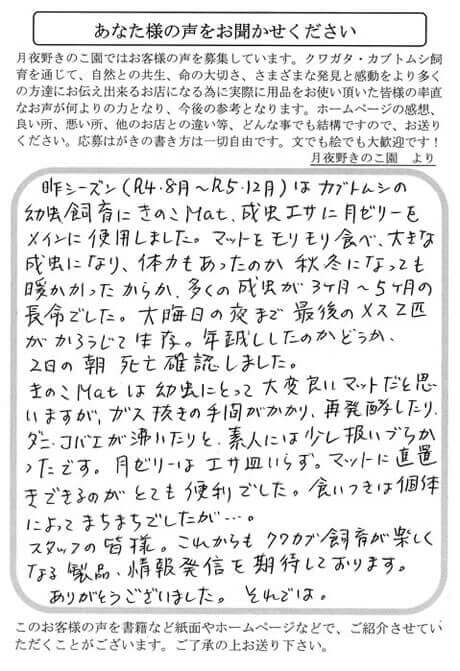 あなた様の声をお聞かせください
月夜野きのこ園ではお客様の声を募集しています。クワガタ・カブトムシ飼
育を通じて、自然との共生、命の大切さ、さまざまな発見と感動をより多く
の方達にお伝え出来るお店になる為に実際に用品をお使い頂いた皆様の率直
なお声が何よりの力となり、今後の参考となります。ホームページの感想、
良い所、悪い所、他のお店との違い等、どんな事でも結構ですので、お送り
ください。応募はがきの書き方は一切自由です。文でも絵でも大歓迎です！
月夜野きのこ園　より
昨シーズン(R4.8月〜R5.12月)はカブトムシの
幼虫飼育にきのこMat、成虫エサに月ゼリーを
メインに使用しました。マットをモリモリ食べ、大きな
成虫になり、体力もあったのか秋冬になっても
暖かかったからか、多くの成虫が3ヶ月〜5ヶ月の
長命でした。大晦日の夜まで最後のメス2匹
がかろうじて生存。年越ししたのかどうか、
2日の朝死亡確認しました。
きのこMatは幼虫にとって大変良いマットだと思
いますが、ガス抜きの手間がかかり、再発酵したり、
ダニ、コバエが沸いたりと、素人には少し扱いづらか
ったです。月ゼリーはエサ皿いらず。マットに直置
きできるのがとても便利でした。食いつきは個体
によってまちまちでしたが…。
スタッフの皆様。これからもクワカブ飼育が楽しく
なる製品、情報発信を期待しております。
ありがとうございました。それでは。
このお客様の声を書籍など紙面やホームページなどで、ご紹介させていた
だくことがございます。ご了承の上お送り下さい。